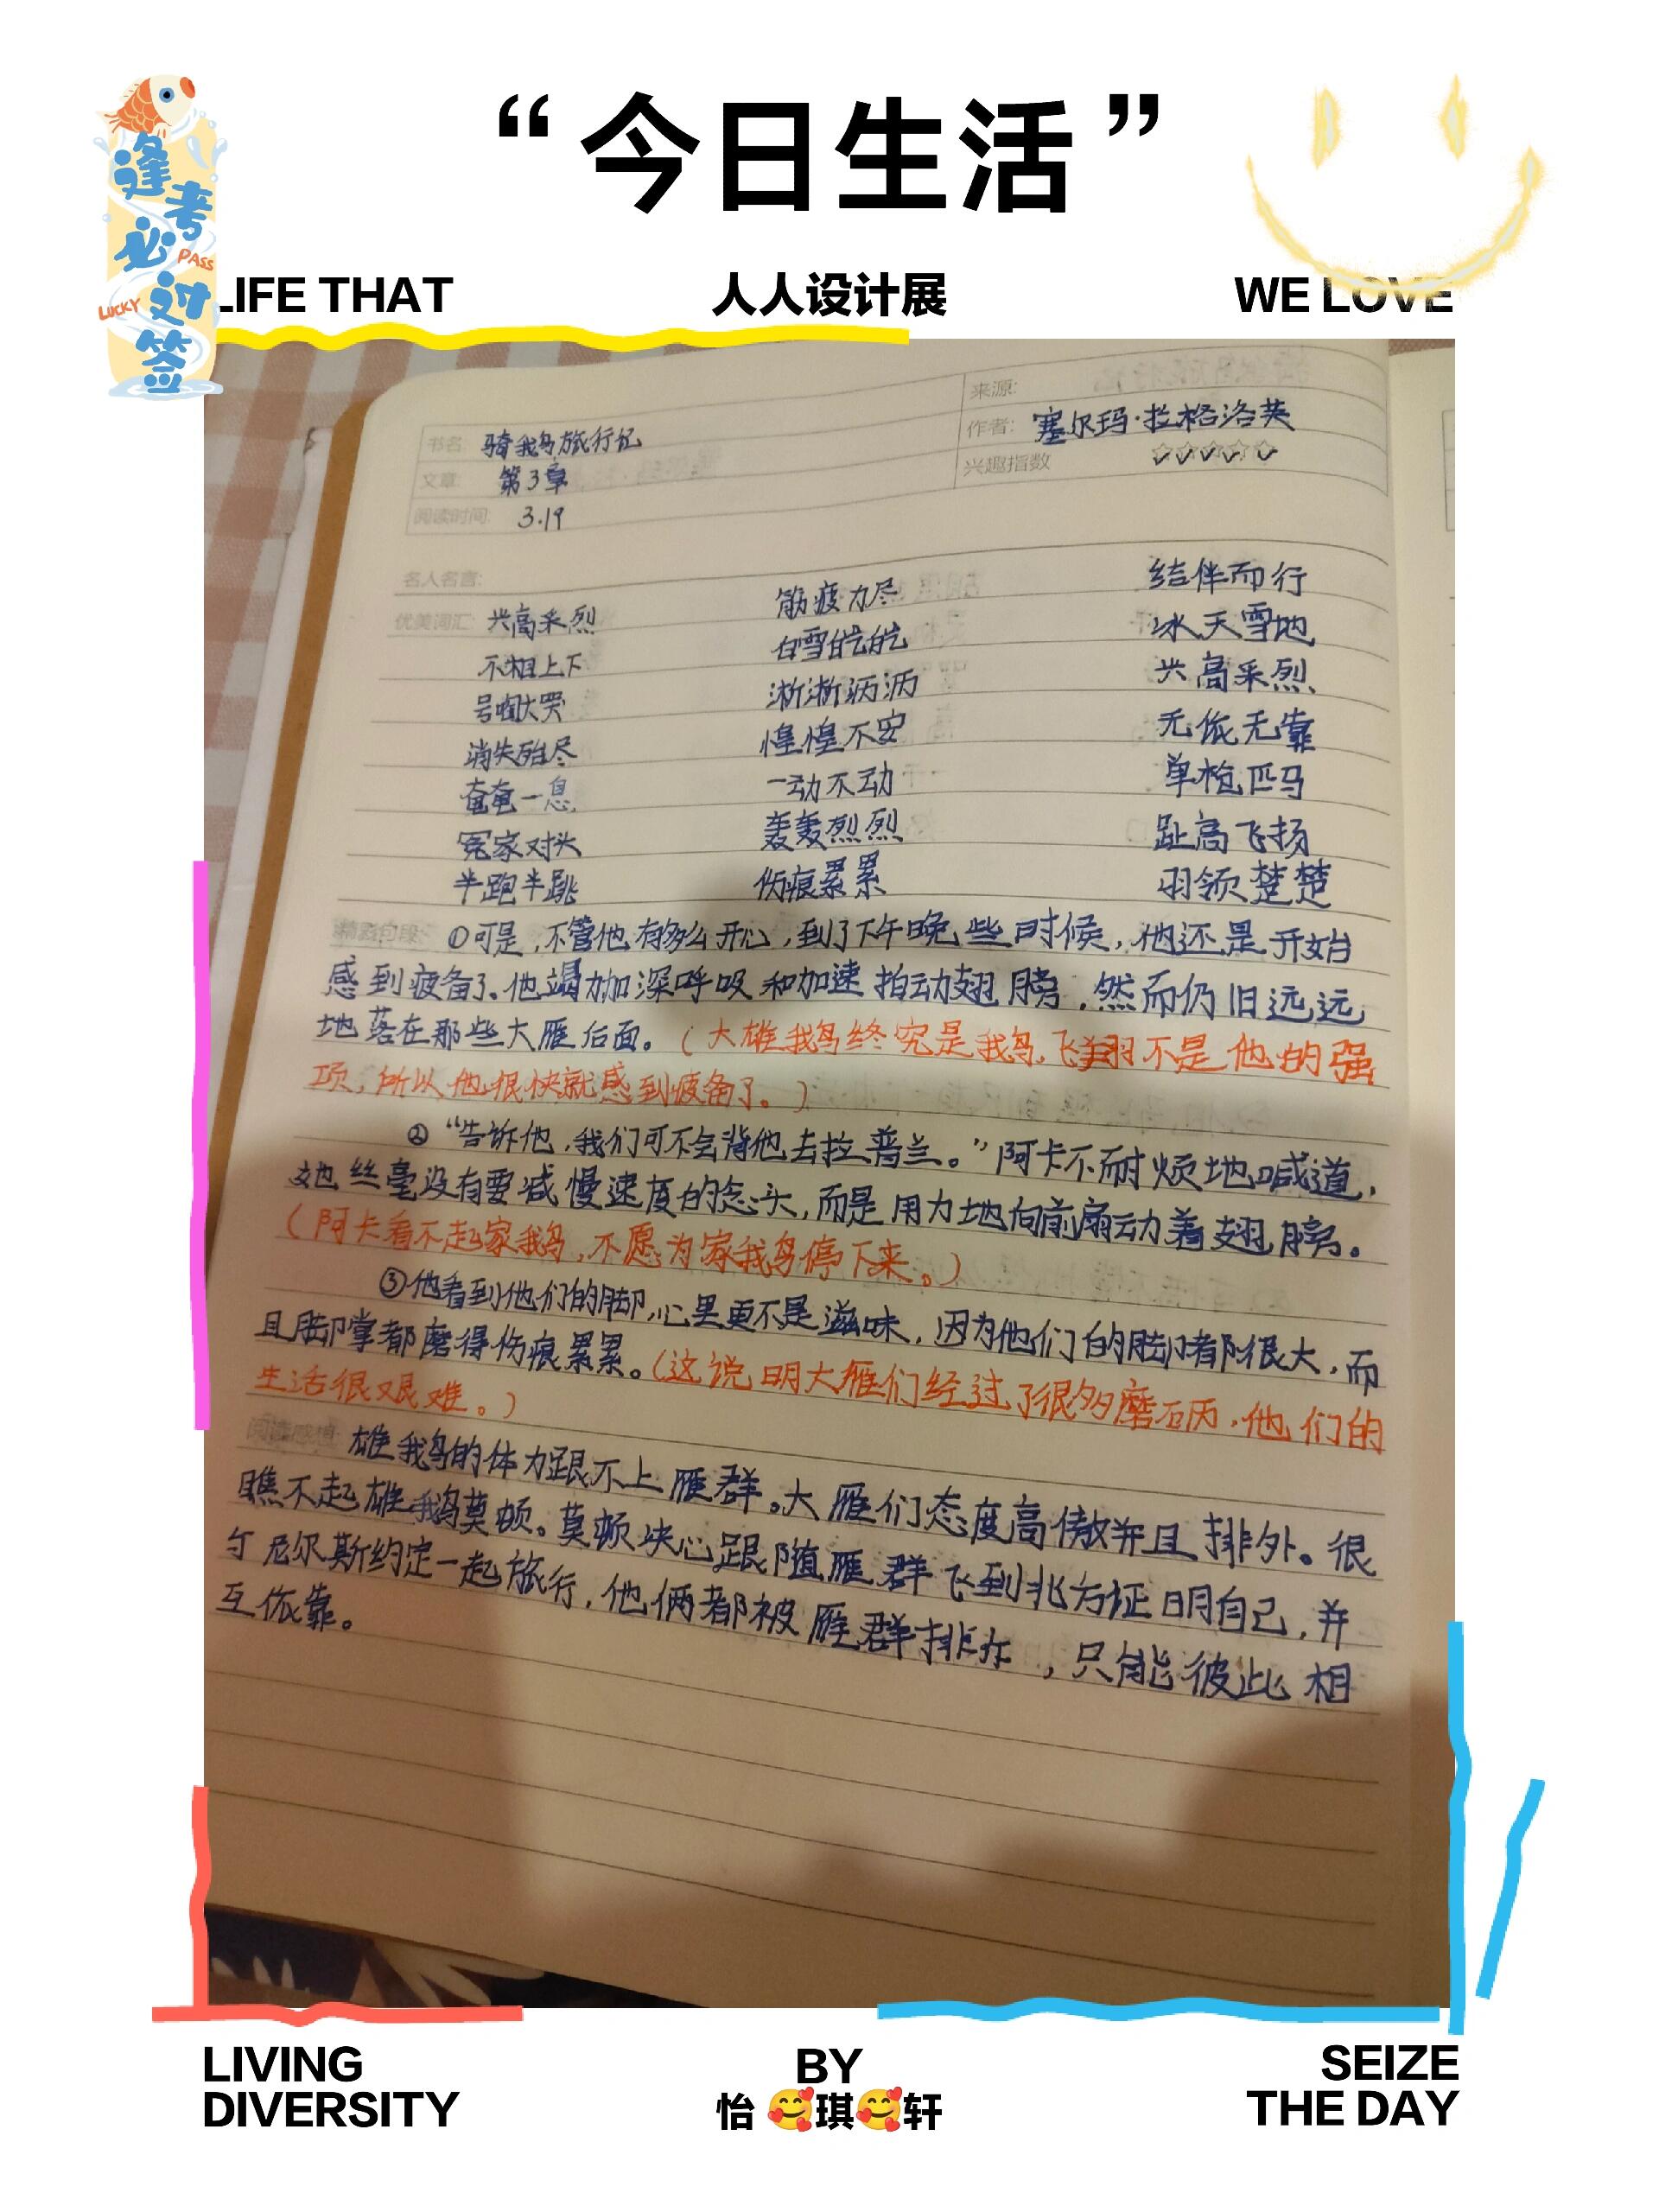 “今日生活”
逢考必过签
PASS
LUCKY
LIFE THAT 人人设计展 WE LOVE
来源:
书名: 骑鹅旅行记 作者: 塞尔玛·拉格洛芙
文章: 第3章 兴趣指数
阅读时间: 3.19
名人名言:
优美词汇: 兴高采烈 筋疲力尽 结伴而行
不相上下 白雪皑皑 冰天雪地
号啕大哭 淅淅沥沥 兴高采烈
消失殆尽 惶惶不安 无依无靠
奄奄一息 一动不动 单枪匹马
冤家对头 轰轰烈烈 趾高飞扬
半跑半跳 伤痕累累 羽领楚楚
精彩句段: ①可是,不管他有多么开心,到了下午晚些时候,他还是开始
感到疲备了。他竭力加深呼吸和加速拍动翅膀,然而仍旧远远
地落在那些大雁后面。(大雄鹅终究是鹅,飞翔不是他的强
项,所以他很快就感到疲备了。)
②“告诉他,我们可不会背他去拉普兰。”阿卡不耐烦地喊道,
她丝毫没有要减慢速度的念头,而是用力地向前扇动着翅膀。
(阿卡看不起家鹅,不愿为家鹅停下来。)
③他看到他们的脚,心里更不是滋味,因为他们的脚都很大,而
且脚掌都磨得伤痕累累。(这说明大雁们经过了很多磨砺,他们的
生活很艰难。)
阅读感悟: 雄鹅的体力跟不上雁群。大雁们态度高傲并且排外。很
瞧不起雄鹅莫顿。莫顿决心跟随雁群飞到北方证明自己,并
与尼尔斯约定一起旅行,他俩都被雁群排斥,只能彼此相
互依靠。
LIVING BY SEIZE
DIVERSITY 怡🥰琪🥰轩 THE DAY